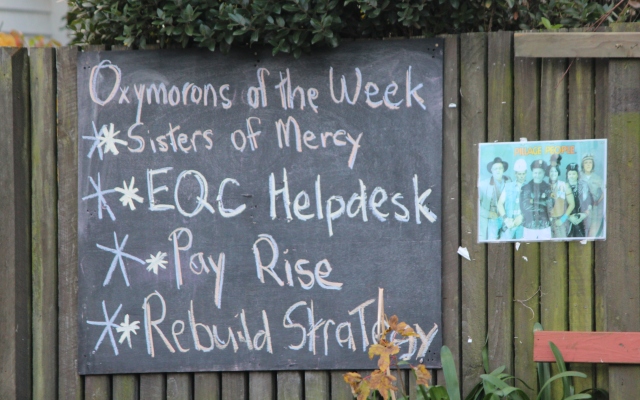 Oxymorons of the Week
**Sisters of Mercy
**EQC Helpdesk
**Pay Rise
**Rebuild StraTegy